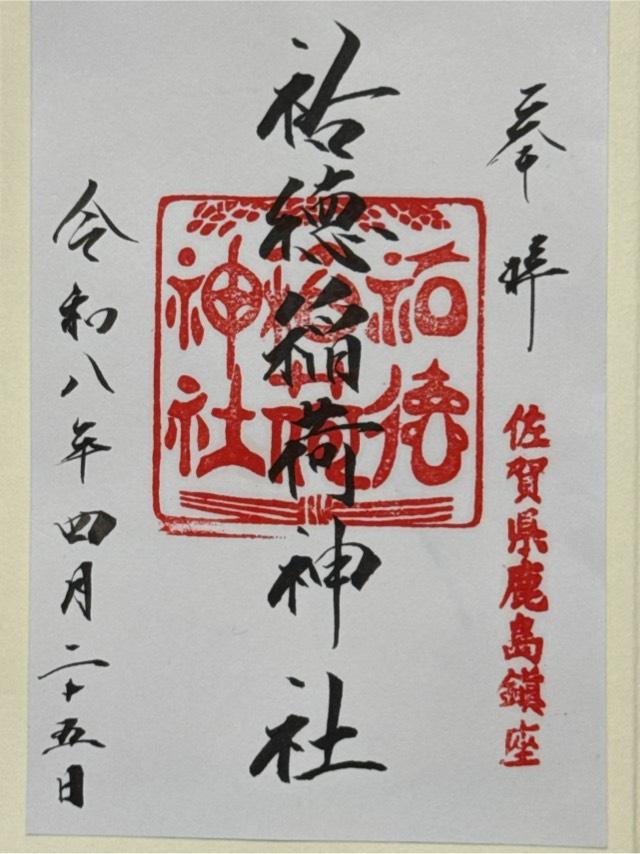 奉拝
佐賀県鹿島鎮座
祐徳稲荷神社
祐徳
稲荷
神社
令和八年四月二十五日